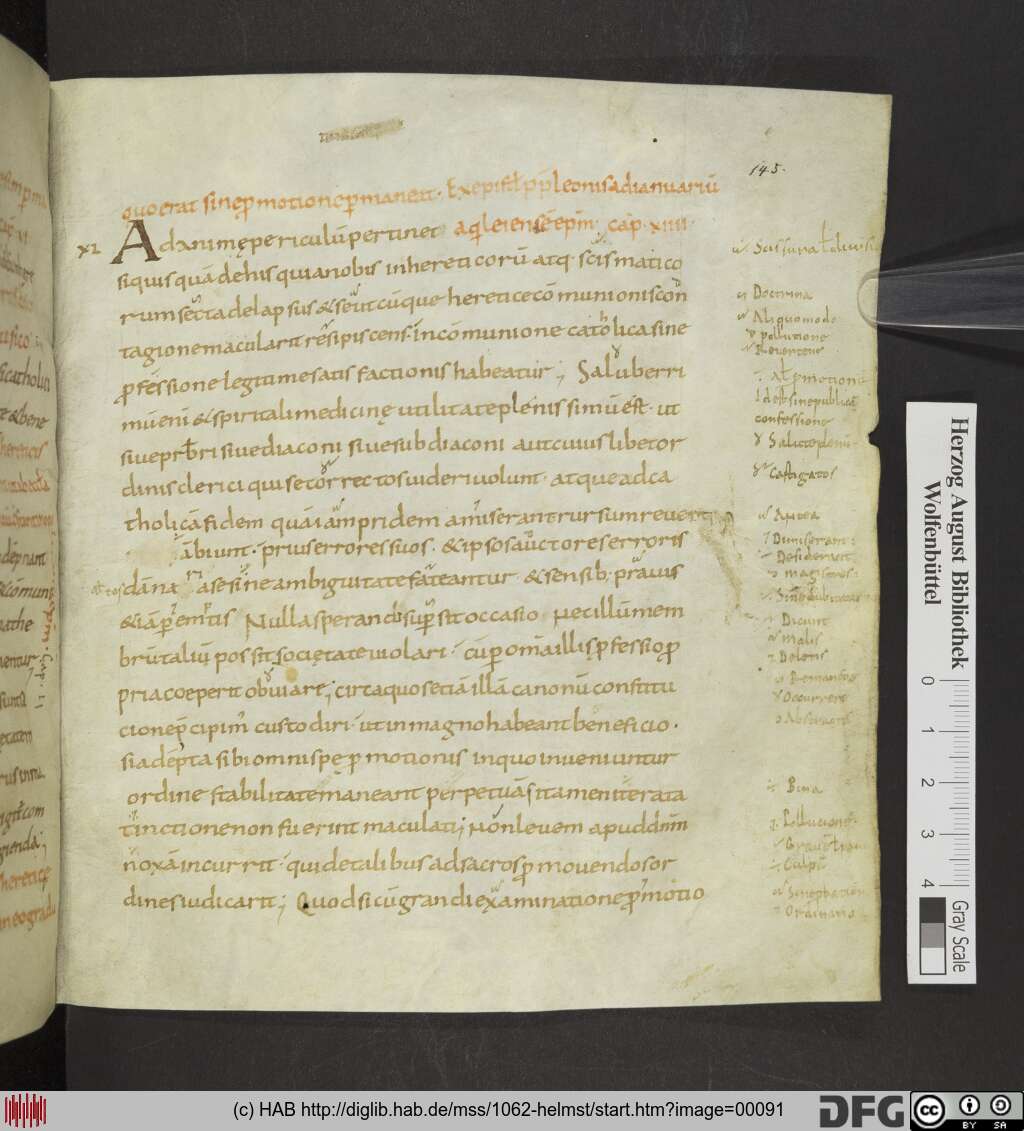 145.
quo erat sine promotione permaneat. Ex epistł pp leonis ad ianuariū
XI
Ad animę periculū pertinet aqleiensē epm. cap. xiiii.
siquisquā dehis qui anobis inhereticorū atq. scismatico
rum secta delapsus & seut cūque heretice cōmunionis con
tagione macularit resipiscens. incōmunione catolica sine
professione legitime satisfactionis habeatur; Saluberri
mū enī & spiritali medicinę utilitate plenissimū est. ut
siue prbri siue diaconi siue subdiaconi aut cuiuslibet or
dinis clerici qui se correctos uideri uolunt. atque ad ca
tholicā fidem quā iāmpridem amiserant rursum reuerti
ābiunt. prius errores suos. & ipsos auctores erroris
dāna as esine ambiguitate fateantur. & sensib. prauis
&iā peremtis Nulla sperandi supsit occasio Nec illū mem
brū taliū possit societate uiolari. cū per omā illis professio p
pria coeperit obuiare; circa quos etiā illā canonū constitu
cionē pcipim custodiri. ut in magno habeant beneficio.
si adēpta sibi omni spę promotionis inquo inueniuntur
ordine stabilitate maneant perpetua. si tamen iterata
tinctione non fuerint maculati; Non leuem apud dnm
noxā incurrit. qui detalibus ad sacros promouendos or
dines iudicarit; Quod si cū grandi examinatione promotio
Scissura ł diuisi
Doctrina
Aliquomodo
pollutione
Reuertens
Ał pmotione
ł dest sine publica
confessione
Castigatos
Antea
Dimiserant
Desiderant
magistros
Dicunt
malis
Deletis
Remanens
Occurrere
Bina
Pollucione
Culpā
Ordinario
Herzog August Bibliothek
Wolfenbüttel
0 1 2 3 4
Gray Scale
(c) HAB http://diglib.hab.de/mss/1062-helmst/start.htm?image=00091
DFG
cc
BY SA